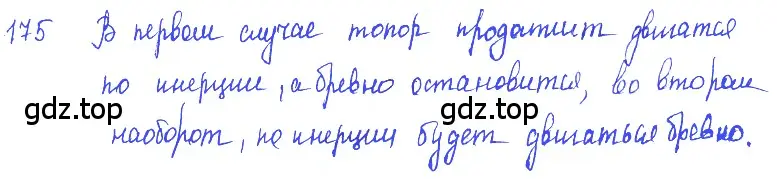 175 В первом случае топор продолжит двигатся
по инерции, а бревно остановится, во втором
gdz.top gdz.top
наоборот, по инерции будет двигаться бревно.